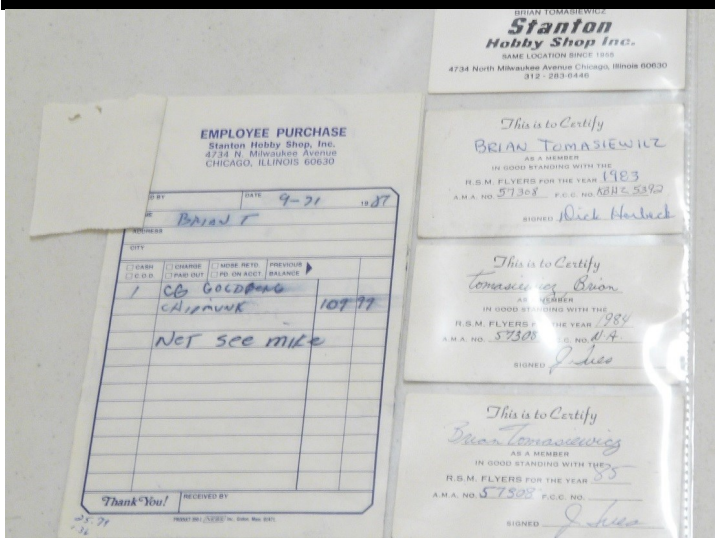 EMPLOYEE PURCHASE
Stanton Hobby Shop, Inc.
4734 N. Milwaukee Avenue
CHICAGO, ILLINOIS 60630
D BY DATE 9-21 1987
BRIAN T
ADDRESS
CITY
CASH CHARGE MDSE. RETD. PREVIOUS
C.O.D. PAID OUT PD. ON ACCT. BALANCE
1 CG GOLDBERG
CHIPMUNK 109 99
NET SEE MIKE
Thank You! RECEIVED BY
25.79
BRIAN TOMASIEWICZ
Stanton
Hobby Shop Inc.
SAME LOCATION SINCE 1955
4734 North Milwaukee Avenue Chicago, Illinois 60630
312-283-6446
This is to Certify
BRIAN TOMASIEWICZ
AS A MEMBER
IN GOOD STANDING WITH THE
R.S.M. FLYERS FOR THE YEAR 1983
A.M.A. NO. 57308 F.C.C. NO. KBHZ 5392
SIGNED Dick
This is to Certify
Tomasiewicz, Brian
AS A MEMBER
IN GOOD STANDING WITH THE
R.S.M. FLYERS FOR THE YEAR 1984
A.M.A. NO. 57308 F.C.C. NO. N.A.
SIGNED J. Ives
This is to Certify
Brian Tomasiewicz
AS A MEMBER
IN GOOD STANDING WITH THE
R.S.M. FLYERS FOR THE YEAR 85
A.M.A. NO. 57308 F.C.C. NO.
SIGNED J. Ives